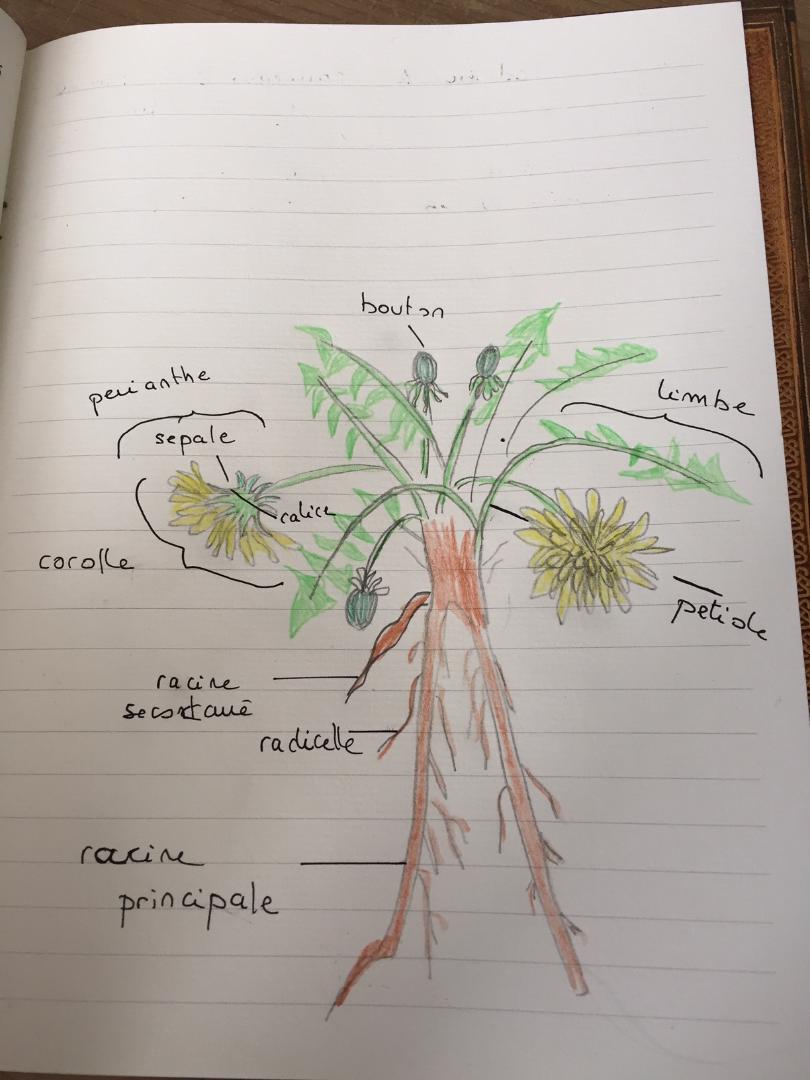 bouton
perianthe
limbe
sepale
calice
corolle
petiole
racine
radicelle
racine
principale